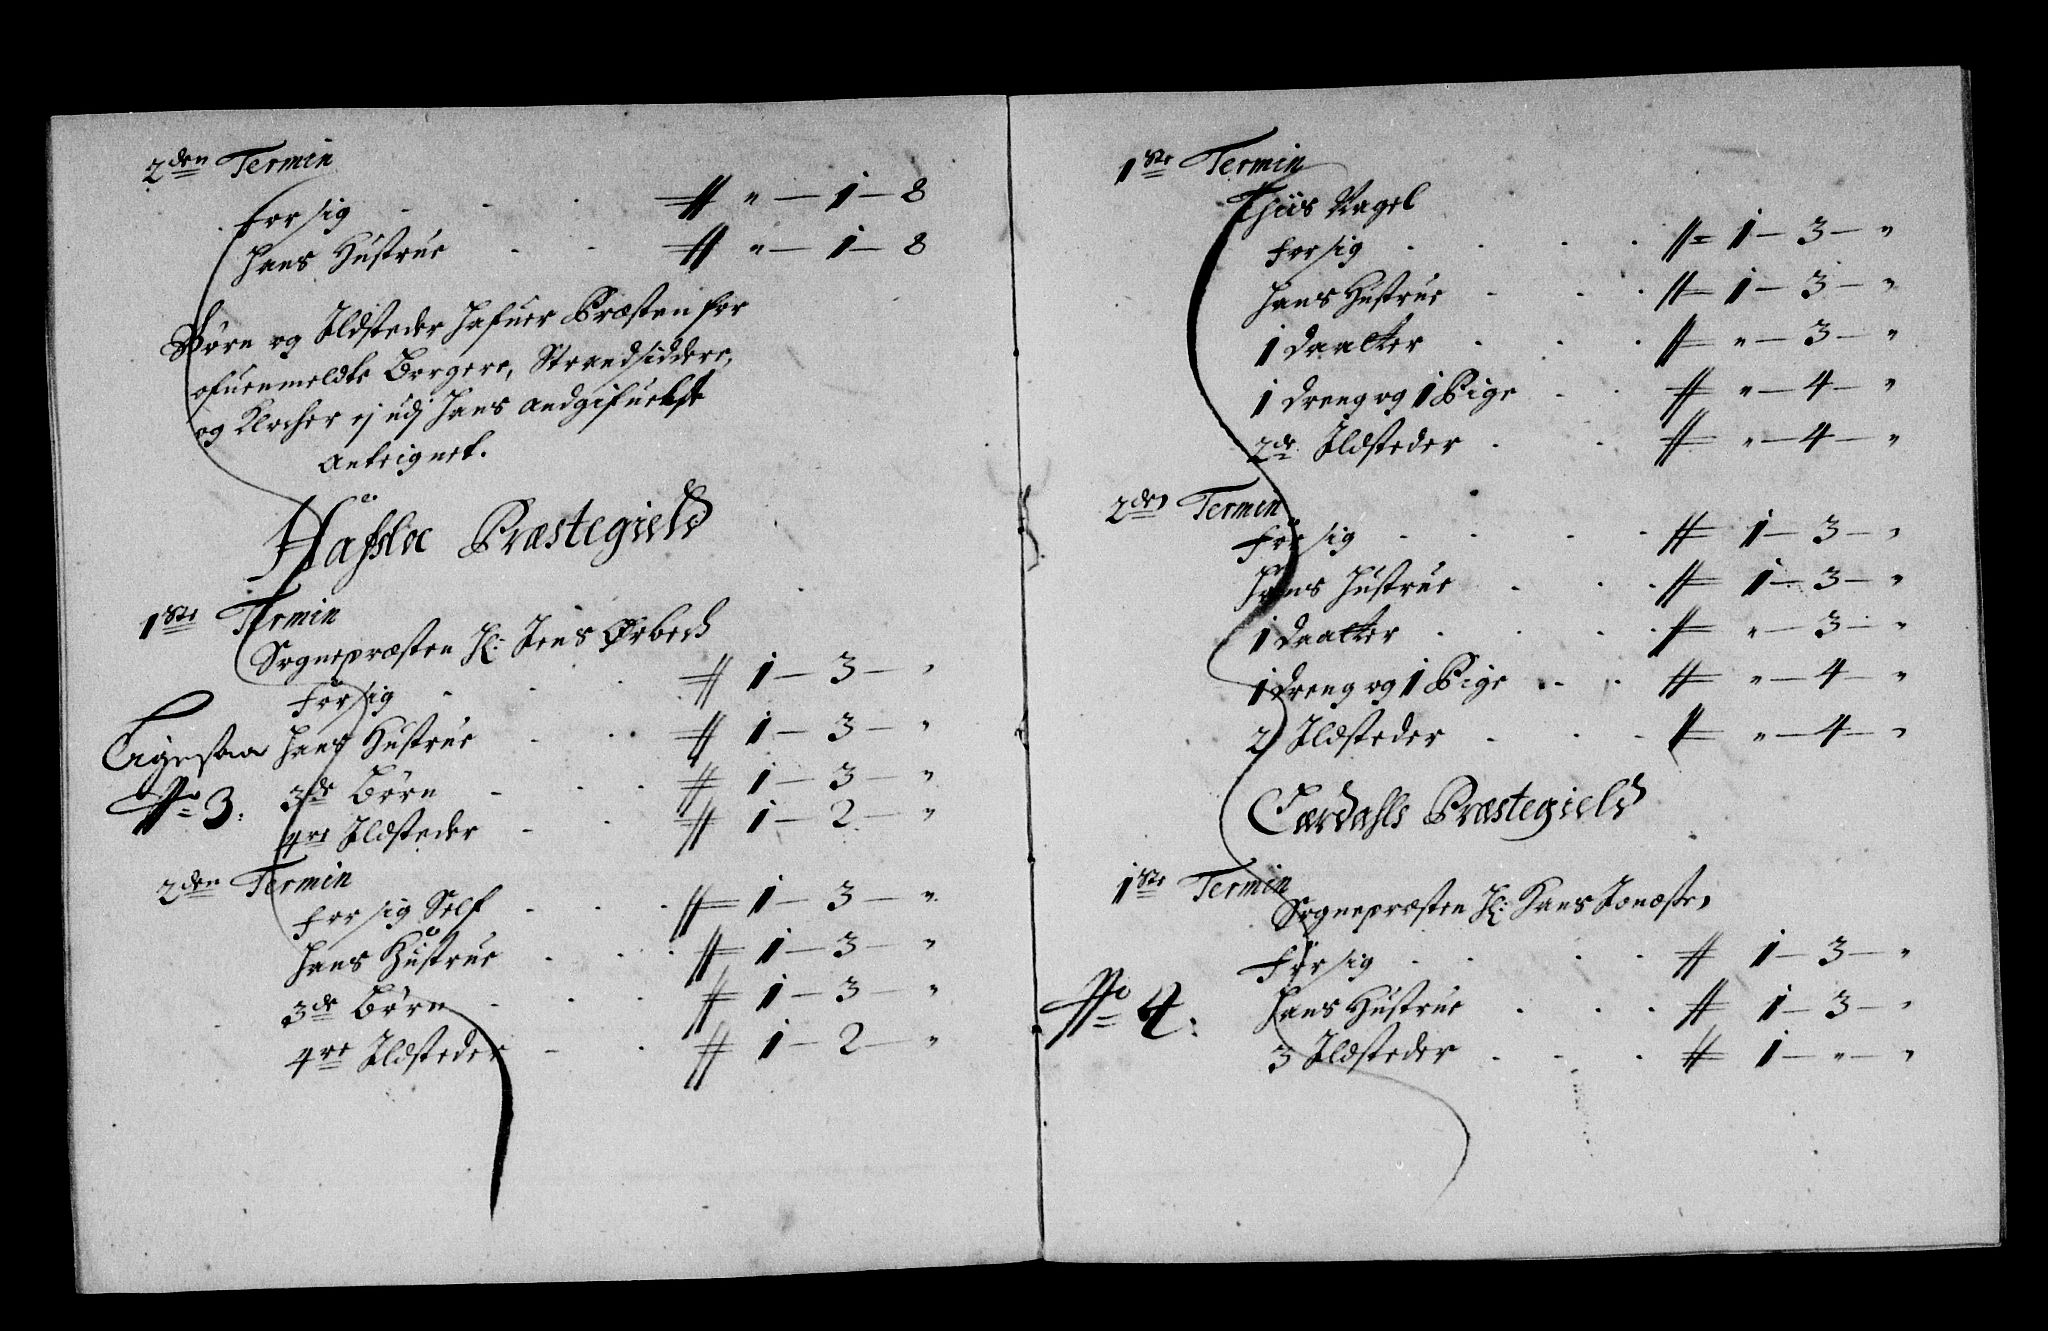 2den Termin
for sig . . . # " — 1 — 8
Hans Hustrue . . # " — 1 — 8
Børn og Ildsteder hafuer Præsten for
ofuenmeldte Borgere, Strandsiddere,
og Klocher ej udj Hans andgifuelse
anteignet.
Hafsloe Præstegield
1ste Termin
Sognepræsten Hr: Jens Ørbech
for sig . . . # 1 — 3 — "
Hans Hustrue . . # 1 — 3 — "
No 3. 3de Børn . . . # 1 — 3 — "
4re Ildsteder . . # 1 — 2 — "
2den Termin
for sig Self . . . # 1 — 3 — "
Hans Hustrue . . . # 1 — 3 — "
3de Børn . . . # 1 — 3 — "
4re Ildsteder . . # 1 — 2 — "
1ste Termin
Thiis Nagel
for sig . . . # 1 — 3 — "
Hans Hustrue . . . # 1 — 3 — "
1 daatter . . . # " — 3 — "
1 dreng og 1 Pige . . # " — 4 — "
2de Ildsteder . . # " — 4 — "
2den Termin
for sig . . . . # 1 — 3 — "
Hans Hustrue . . . # 1 — 3 — "
1 daatter . . . . # " — 3 — "
1 dreng og 1 Pige . . # " — 4 — "
2 Ildsteder . . . # " — 4 — "
Lærdahls Præstegield
1ste Termin
Sognepræsten Hr: Hans
for sig . . . . # 1 — 3 — "
No 4. Hans Hustrue . . . # 1 — 3 — "
3 Ildsteder . . . # 1 — " — "